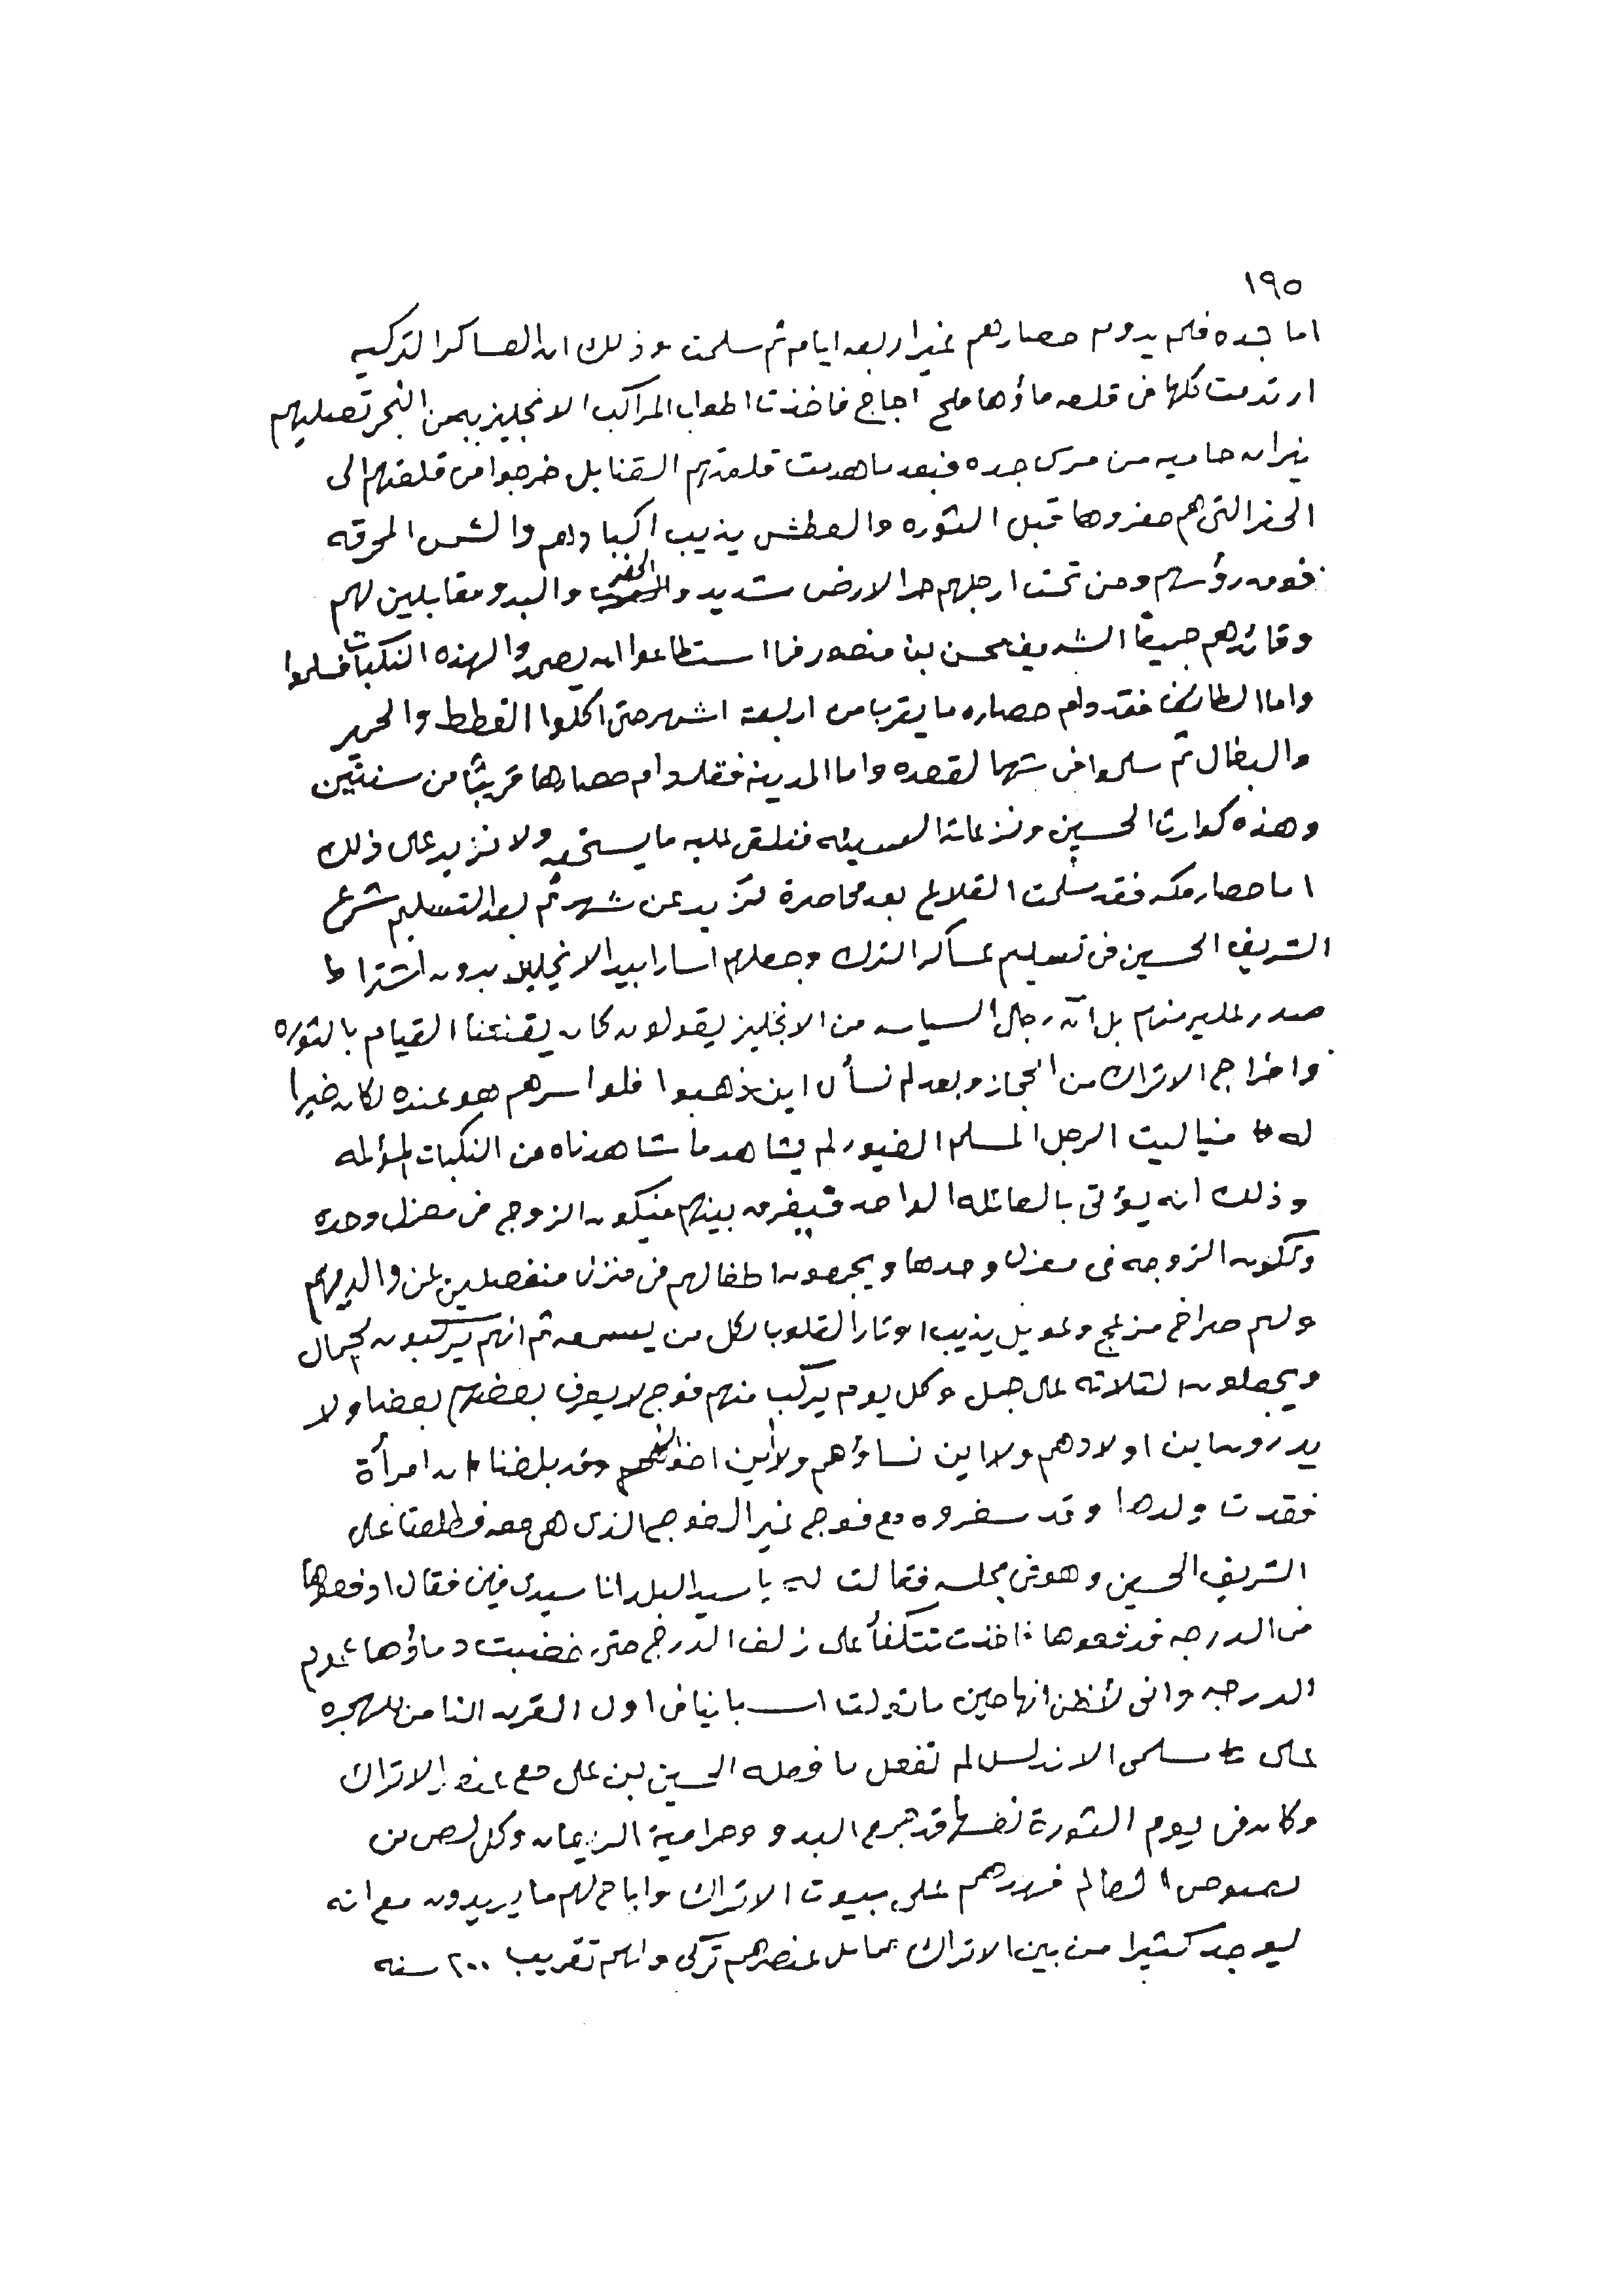 ١٩٥
اما جده فلم يدوم حصارهم غير اربعه ايام ثم سلمت وذلك ان العساكر التركيه
ارتدمت كلها في قلعه ماؤها ملح اجاج فاخذت اطواب المراكب الانجليز من البحر تصليهم
نيران حاميه من مرسى جده فبعد ما هدمت قلعتهم القنابل خرجوا من قلعتهم الى
الحفر التي هم حفروها قبل الثوره والعطش يذيب اكبادهم والشمس المحرقه
فوق رؤسهم ومن تحت ارجلهم حر الارض شديد والحفر والبدو مقابلين لهم
وقائدهم جميعًا الشريف محسن بن منصور فما استطاعوا ان يصمدوا لهذه النكبات فسلموا
واما الطائف فقد دام حصاره ما يقرب من اربعة اشهر حتى اكلوا القطط والحمير
والبغال ثم سلموا في شهر القعده واما المدينه فقد دام حصارها قريبًا من سنتين
وهذه كوارث الحسين ونزعاته السيئه فنلقى عليه ما يستحقه ولا نزيد على ذلك
اما حصار مكه فقد سلمت القلاع بعد محاصرة تزيد عن شهر ثم بعد التسليم شرع
الشريف الحسين في تسليم عساكر الترك وجعلهم اسارا بيد الانجليز بدون اشتراط
صدر عليه منهم بل ان رجال السياسه من الانجليز يقولون كان يقنعنا القيام بالثوره
واخراج الاتراك من الحجاز وبعد لم نسأل اين ذهبوا فلو اسرهم هو عنده لكان خيرا
له فيا ليت الرجل المسلم الغيور لم يشاهد ما شاهدناه من النكبات المؤلمه
وذلك انه يؤتى بالعائله الواحده فيفرق بينهم فيكون الزوج في معزل وحده
وتكون الزوجه في معزل وحدها ويجمعون اطفالهم في منزل منفصلين عن والديهم
ولهم صراخ مزعج وعويل يذيب اوتار القلوب لكل من يسمعه ثم انهم يركبون الجمال
ويجعلون الثلاثه على جمل وكل يوم يركب منهم فوج لا يعرف بعضهم بعضا ولا
يدرون اين اولادهم ولا اين نساؤهم ولا اين اخوانهم وقد بلغنا ان امرأة
فقدت ولدها وقد سفروه مع فوج غير الفوج الذي هي معه فطلعت على
الشريف الحسين وهو في مجلسه فقالت له يا سيد البلد انا سيدي فين فقال ادفعوها
من الدرجه فدفعوها فاخذت تتكفأ على زلف الدرج حتى خضبت دماؤها عموم
الدرجه واني لأظن انها حين ما تولت اسبانيا في اول القرن الثامن للهجره
على مسلمى الاندلس لم تفعل ما فعله الحسين بن علي مع عنصر الاتراك
وكان في يوم الثورة نفسها قد تبرع البدو وحرامية الريعان وكل لص من
لصوص العالم فهدرهم على بيوت الاتراك واباح لهم ما يريدون مع انه
ليوجد كثيرا من بين الاتراك عنصرهم تركي ولهم تقريب ٢٠٠ سنه